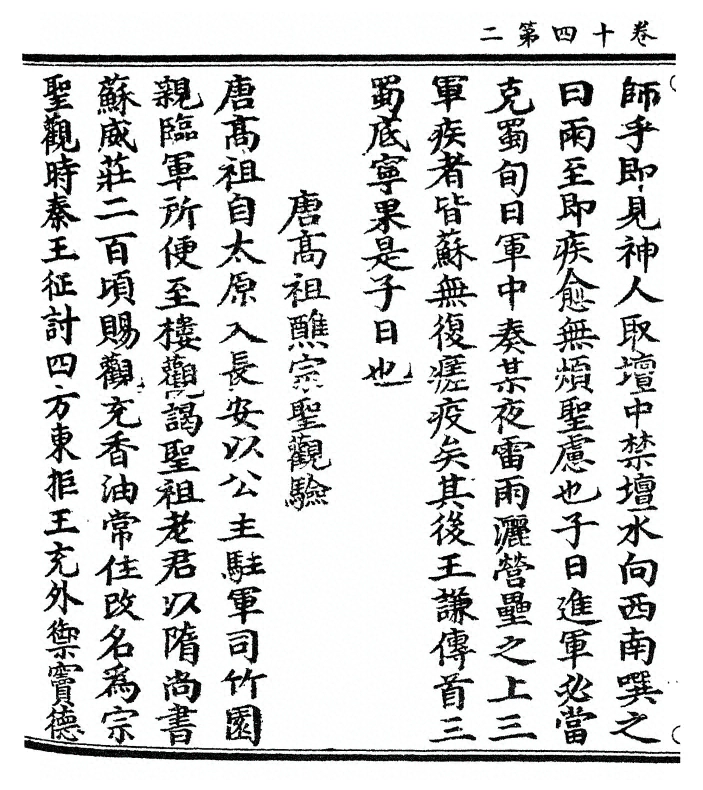 卷十四第二
師乎即見神人取壇中禁壇水向西南噀之
曰雨至即疾愈無煩聖慮也子日進軍必當
克蜀旬日軍中奏某夜雷雨灑營壘之上三
軍疾者皆蘇無復瘥疫矣其後王謙傳首三
蜀底寧果是子日也
唐髙祖醮宗聖觀驗
唐髙祖自太原入長安以公主駐軍司竹園
親臨軍所便至樓觀謁聖祖老君以隋尚書
蘇威莊二百頃賜觀充香油常住改名爲宗
聖觀時秦王征討四方東拒王充外禦竇德